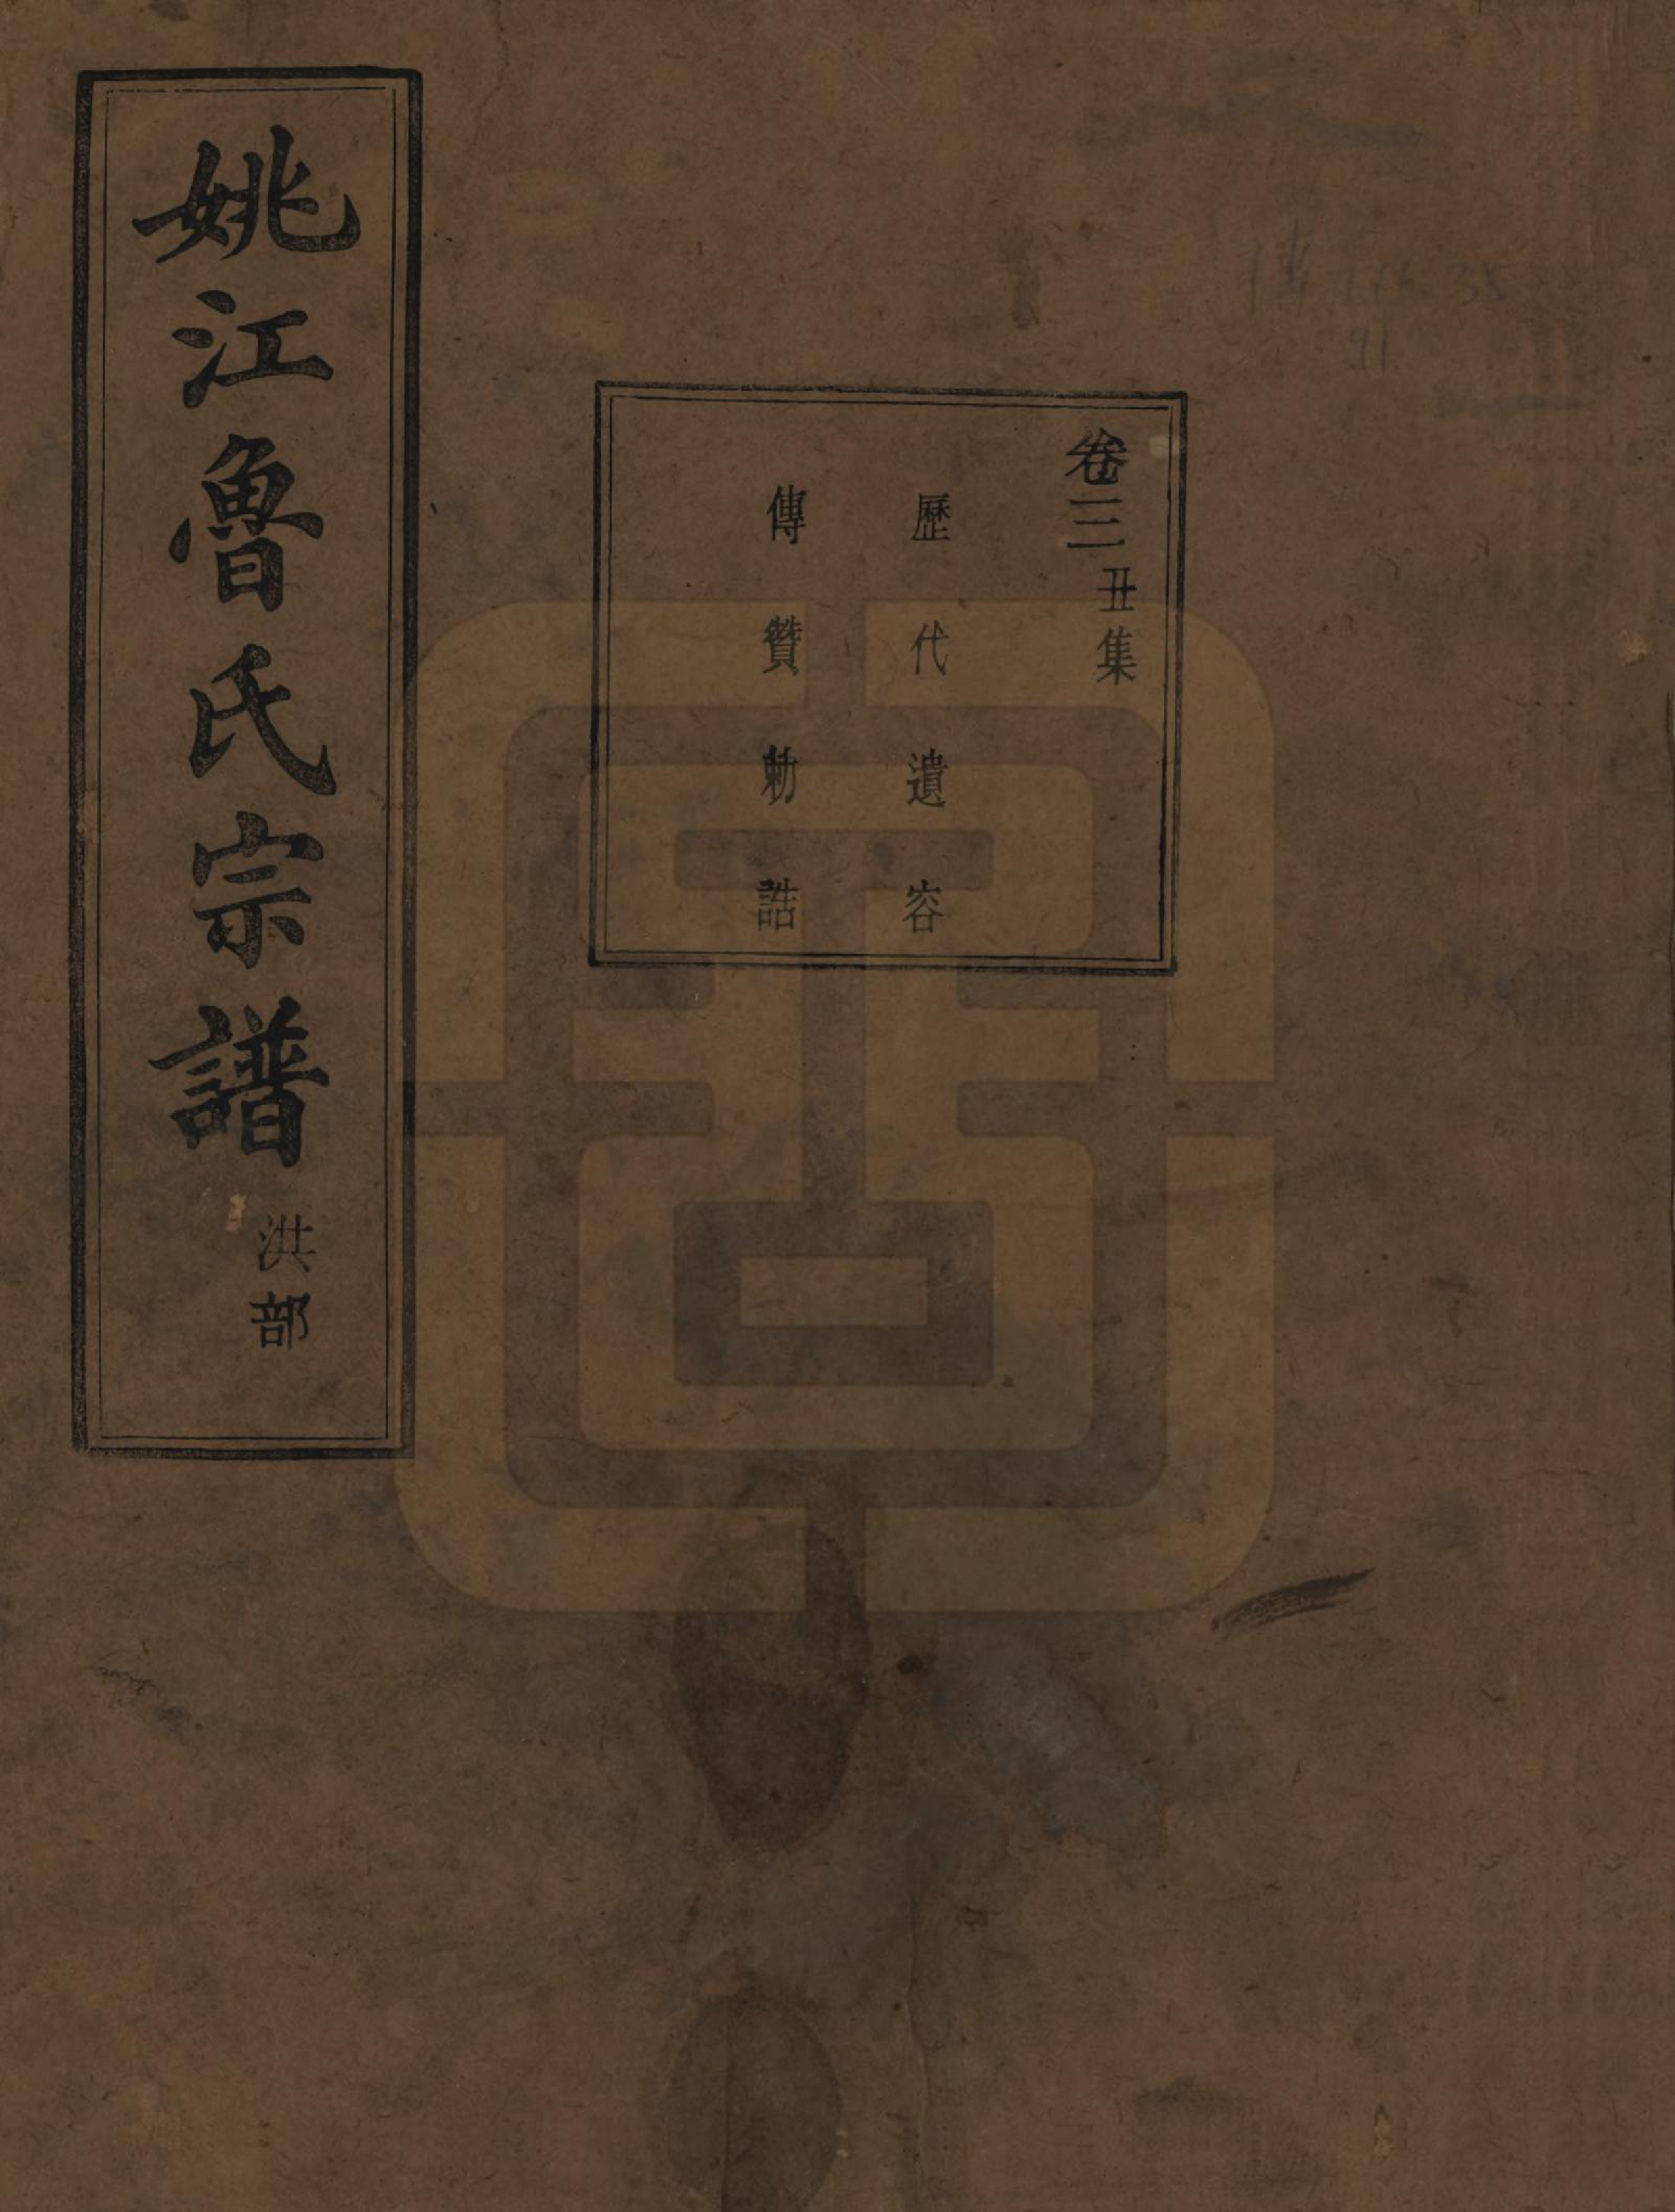 卷三 丑集
歷代遺容
傳贊勅誥
姚江魯氏宗譜 洪部